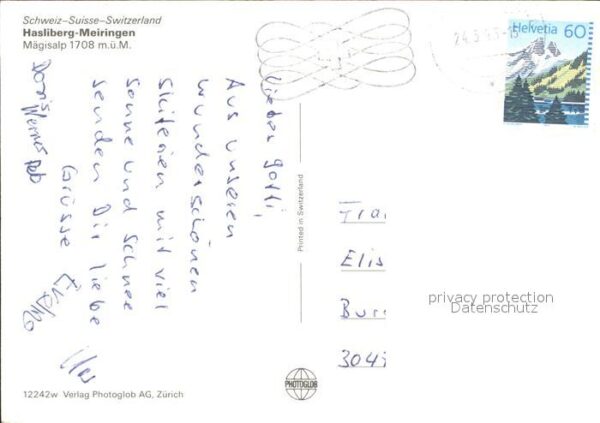 Schweiz–Suisse–Switzerland
Hasliberg-Meiringen
Mägisalp 1708 m.ü.M.
Helvetia 60
24.3.93-15
Lieber Gotti,
Aus unseren
wunderschönen
Skiferien mit viel
Sonne und Schnee
senden Dir liebe
Grüsse
Doris
Werner
Printed in Switzerland
Elis
3049
privacy protection
Datenschutz
PHOTOGLOB
12242w Verlag Photoglob AG, Zürich